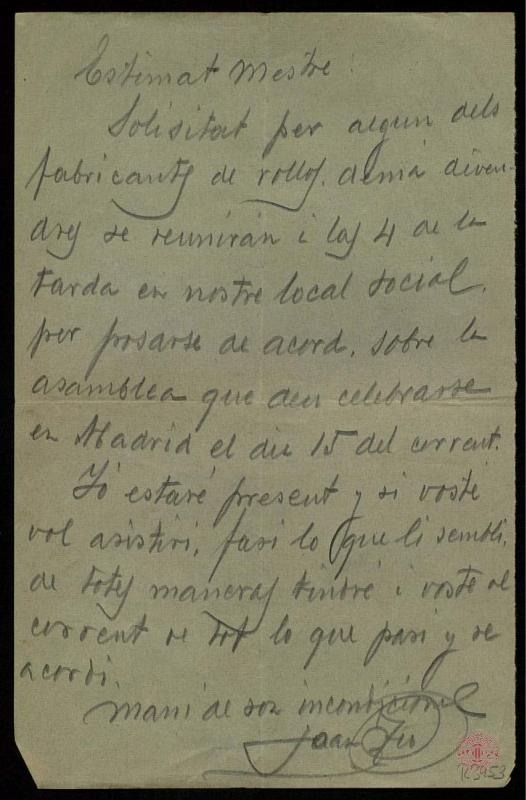 Estimat Mestre:
Solisitat per algun dels
fabricants de rollos, demá diven-
dres se reunirán i las 4 de la
tarda en nostre local social,
per posarse de acord, sobre la
asamblea que deu celebrarse
en Madrid el dia 15 del corrent.
Jó estaré present y si vosté
vol asistiri, fasi lo que li sembli,
de totes maneras tindré i vosté al
corrent de tot lo que pasi y se
acordi.
Mani de son incondicional
Joan
K3953